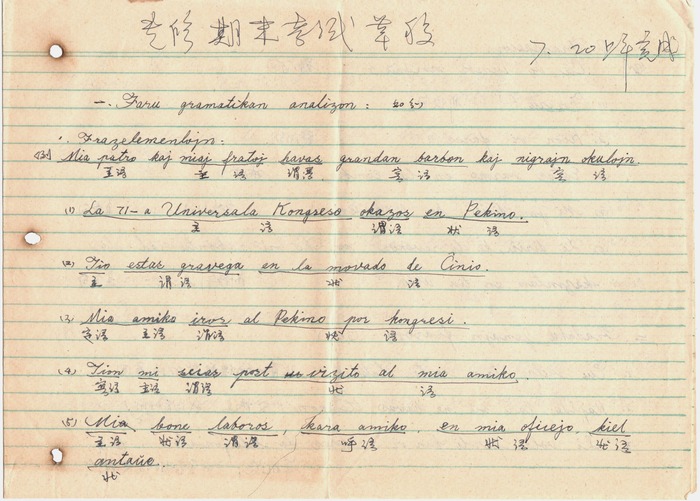 选修期末考试草殺
7.20 晔竟成
一. Faru gramatikan analizon: 20分
1. Frazelementojn:
(例) Mia patro kaj miaj fratoj havas grandan barbon kaj nigrajn okulojn
主语 主语 谓语 宾语 宾语
(1) La 71-a Universala Kongreso okazos en Pekino.
主 语 谓语 状语
(2) Tio estas gravega en la movado de Cinio.
主 谓语 状 语
(3) Mia amiko iros al Pekino por kongresi.
定语 主语 谓语 状 语
(4) Tion mi scias post vizito al mia amiko.
宾语 主语 谓语 状 语
(5) Mia bone laboros, kara amiko, en mia oficejo, kiel
主语 状语 谓语 呼语 状语 状语
antaŭe.
状